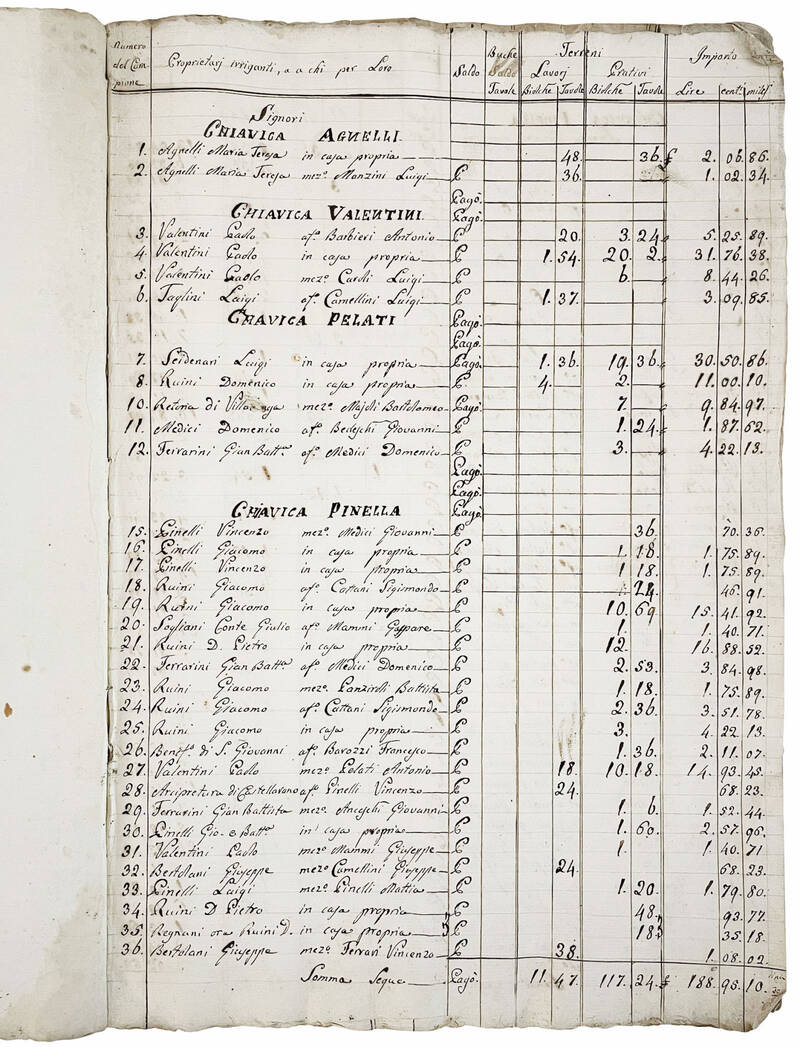 Numero del Campione Proprietarj irriganti, o a chi per Loro Saldo Buche Saldo Tavole Terreni Lavorj Biolche Tavole Prativi Biolche Tavole Importo Lire cent: mill.
Signori
CHIAVICA AGNELLI
1. Agnelli Maria Teresa in casa propria 48. 36. £ 2. 06. 86.
2. Agnelli Maria Teresa mezo. Manzini Luigi P 36. 1. 02. 34.
Pagò.
CHIAVICA VALENTINI Pagò.
3. Valentini Paolo afo. Barbieri Antonio P 20. 3. 24. 5. 25. 89.
4. Valentini Paolo in casa propria P 1. 54. 20. 2. 31. 76. 38.
5. Valentini Paolo mezo. Caroli Luigi P 6. 8. 44. 26.
6. Taglini Luigi afo. Camellini Luigi P 1. 37. 3. 09. 85.
CHIAVICA PELATI Pagò.
Pagò.
7. Serdenari Luigi in casa propria Pagò. 1. 36. 19. 36. 30. 50. 86.
8. Ruini Domenico in casa propria P 4. 2. 11. 00. 10.
10. Retoria di mezo. Majoli Bartolomeo Pagò. 7. 9. 84. 97.
11. Medici Domenico afo. Bedeschi Giovanni P 1. 24. 1. 87. 62.
12. Ferrarini Gian Batta. afo. Medici Domenico P 3. 4. 22. 13.
Pagò.
Pagò.
CHIAVICA PINELLA Pagò.
15. Pinelli Vincenzo mezo. Medici Giovanni P 36. 70. 36.
16. Pinelli Giacomo in casa propria P 1. 18. 1. 75. 89.
17. Pinelli Vincenzo in casa propria P 1. 18. 1. 75. 89.
18. Ruini Giacomo afo. Cattani Sigismondo P 24. 46. 91.
19. Ruini Giacomo in casa propria P 10. 69. 15. 41. 92.
20. Sogliani Conte Giulio afo. Mammi Gaspare P 1. 1. 40. 71.
21. Ruini D. Pietro in casa propria P 12. 16. 88. 52.
22. Ferrarini Gian Batta. afo. Medici Domenico P 2. 53. 3. 84. 98.
23. Ruini Giacomo mezo. Panziroli Battista P 1. 18. 1. 75. 89.
24. Ruini Giacomo afo. Cattani Sigismondo P 2. 36. 3. 51. 78.
25. Ruini Giacomo in casa propria P 3. 4. 22. 13.
26. Benefo. di S. Giovanni afo. Barozzi Francesco P 1. 36. 2. 11. 07.
27. Valentini Paolo mezo. Pelati Antonio P 18. 10. 18. 14. 93. 45.
28. Arcipretura di Castellarano afo. Pinelli Vincenzo P 24. 68. 23.
29. Ferrarini Gian Battista mezo. Anceschi Giovanni P 1. 6. 1. 52. 44.
30. Pinelli Gio. e Batta. in casa propria P 1. 60. 2. 57. 96.
31. Valentini Paolo mezo. Mammi Giuseppe P 1. 1. 40. 71
32. Bertolani Giuseppe mezo. Camellini Giuseppe P 24. 68. 23.
33. Pinelli Luigi mezo. Pinelli Mattia P 1. 20. 1. 79. 80.
34. Ruini D Pietro in casa propria P 48. 93. 77.
35. Regnani ora Ruini D. in casa propria P 18. 35. 18.
36. Bertolani Giuseppe mezo. Ferrari Vincenzo P 38. 1. 08. 02.
Somma Segue Pagò. 11. 47. 117. 24. £ 188. 95. 10.